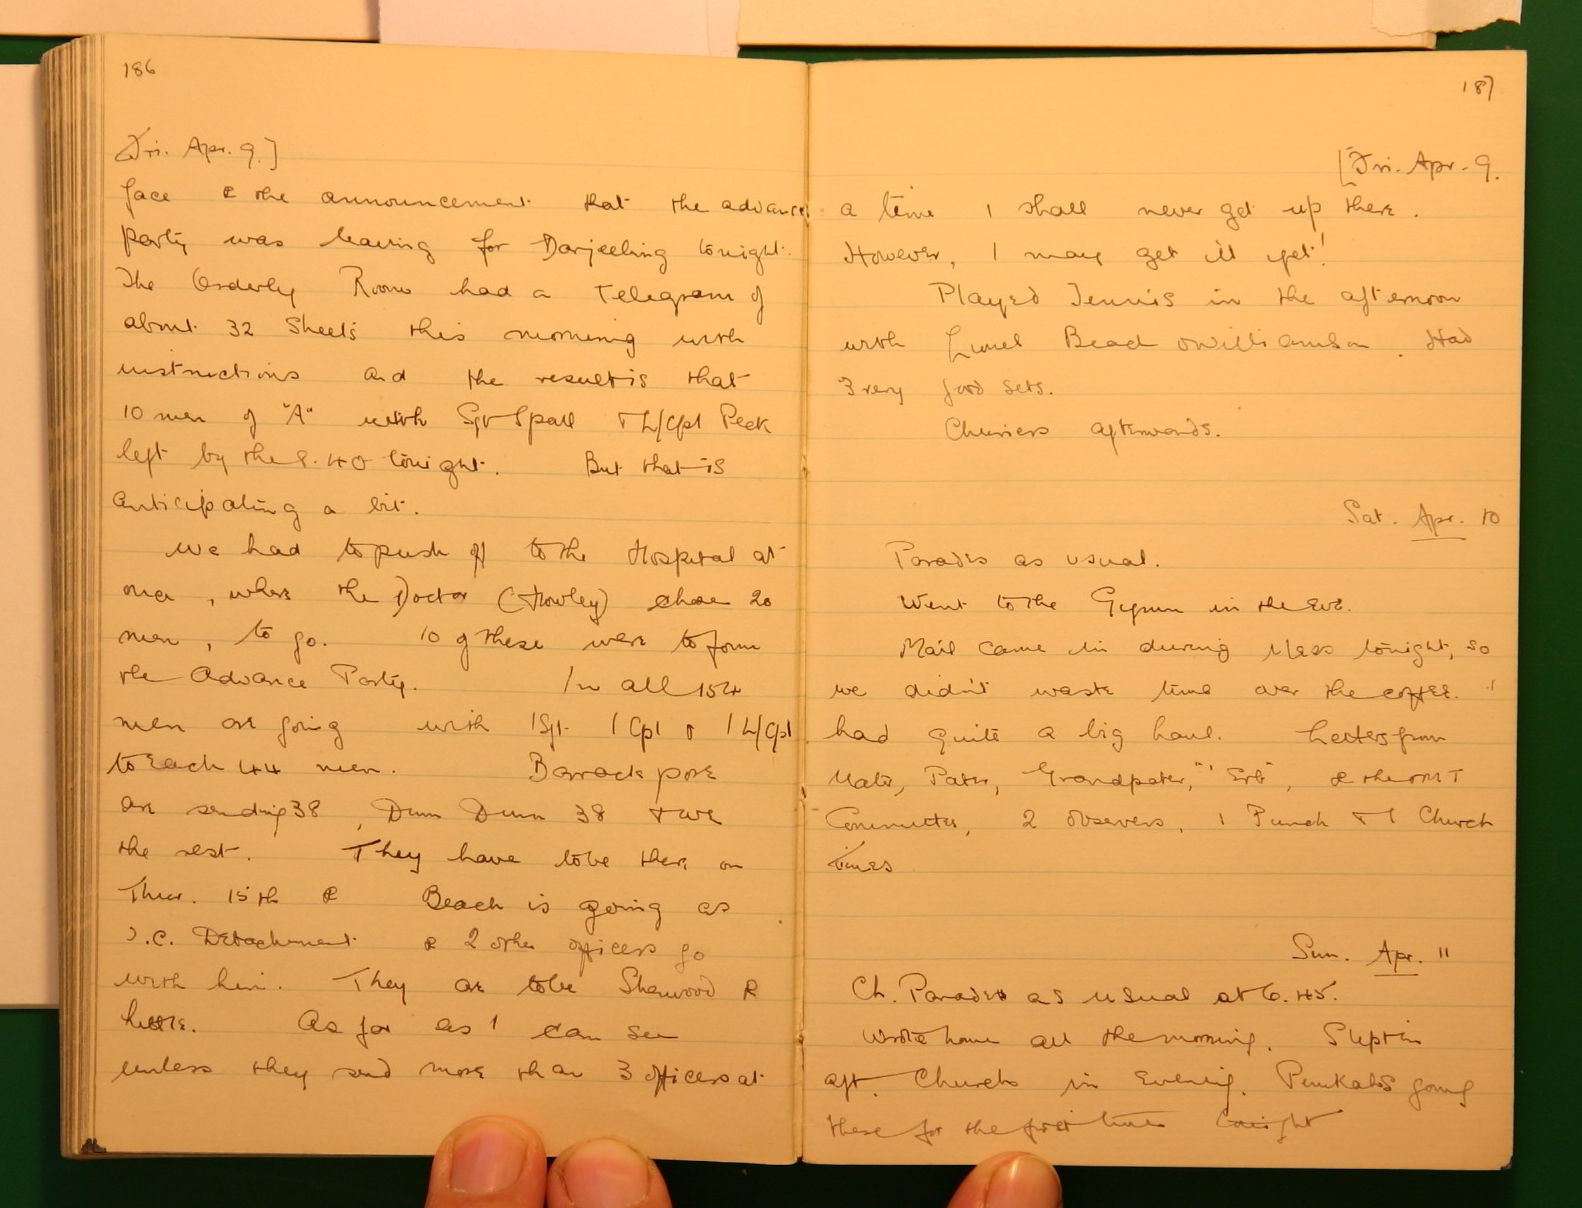 186
[Fri. Apr. 9.]
face & the announcement that the advance
party was leaving for Darjeeling tonight.
The Orderly Room had a Telegram of
about 32 sheets this morning with
instructions and the result is that
10 men of "A" with Sgt Spall + L/Cpl Peck
left by the 8.40 tonight. But that is
anticipating a bit.
We had to push off to the Hospital at
once, where the Doctor (Howley) chose 20
men, to go. 10 of these were to form
the Advance Party. In all 154
men are going with 1 Sgt. 1 Cpl & 1 L/Cpl
to each 44 men. Barrackpore
are sending 38, Dum Dum 38 + we
the rest. They have to be there on
Thur. 15th & Beach is going as
O.C. Detachment & 2 other officers go
with him. They are to be Sherwood &
As far as I can see
unless they send more than 3 officers at
187
[Fri. Apr. 9.
a time I shall never get up there.
However, I may get it yet!
Played Tennis in the afternoon
with Lionel Beach & Williamson. Had
3 very good sets.
afterwards.
Sat. Apr. 10
Parades as usual.
Went to the Gymn in the Eve.
Mail came in during Mess tonight, so
we didn't waste time over the coffee. I
had quite a big haul. Letters from
Mater, Pater, "Grandpater," & the
Committee, 2 Observers, 1 Punch + 1 Church
Times
Sun. Apr. 11
Ch. Parade as usual at 6.45.
Wrote home all the morning. Slept in
aft. Church in Evening. Punkahs going
these for the first time tonight